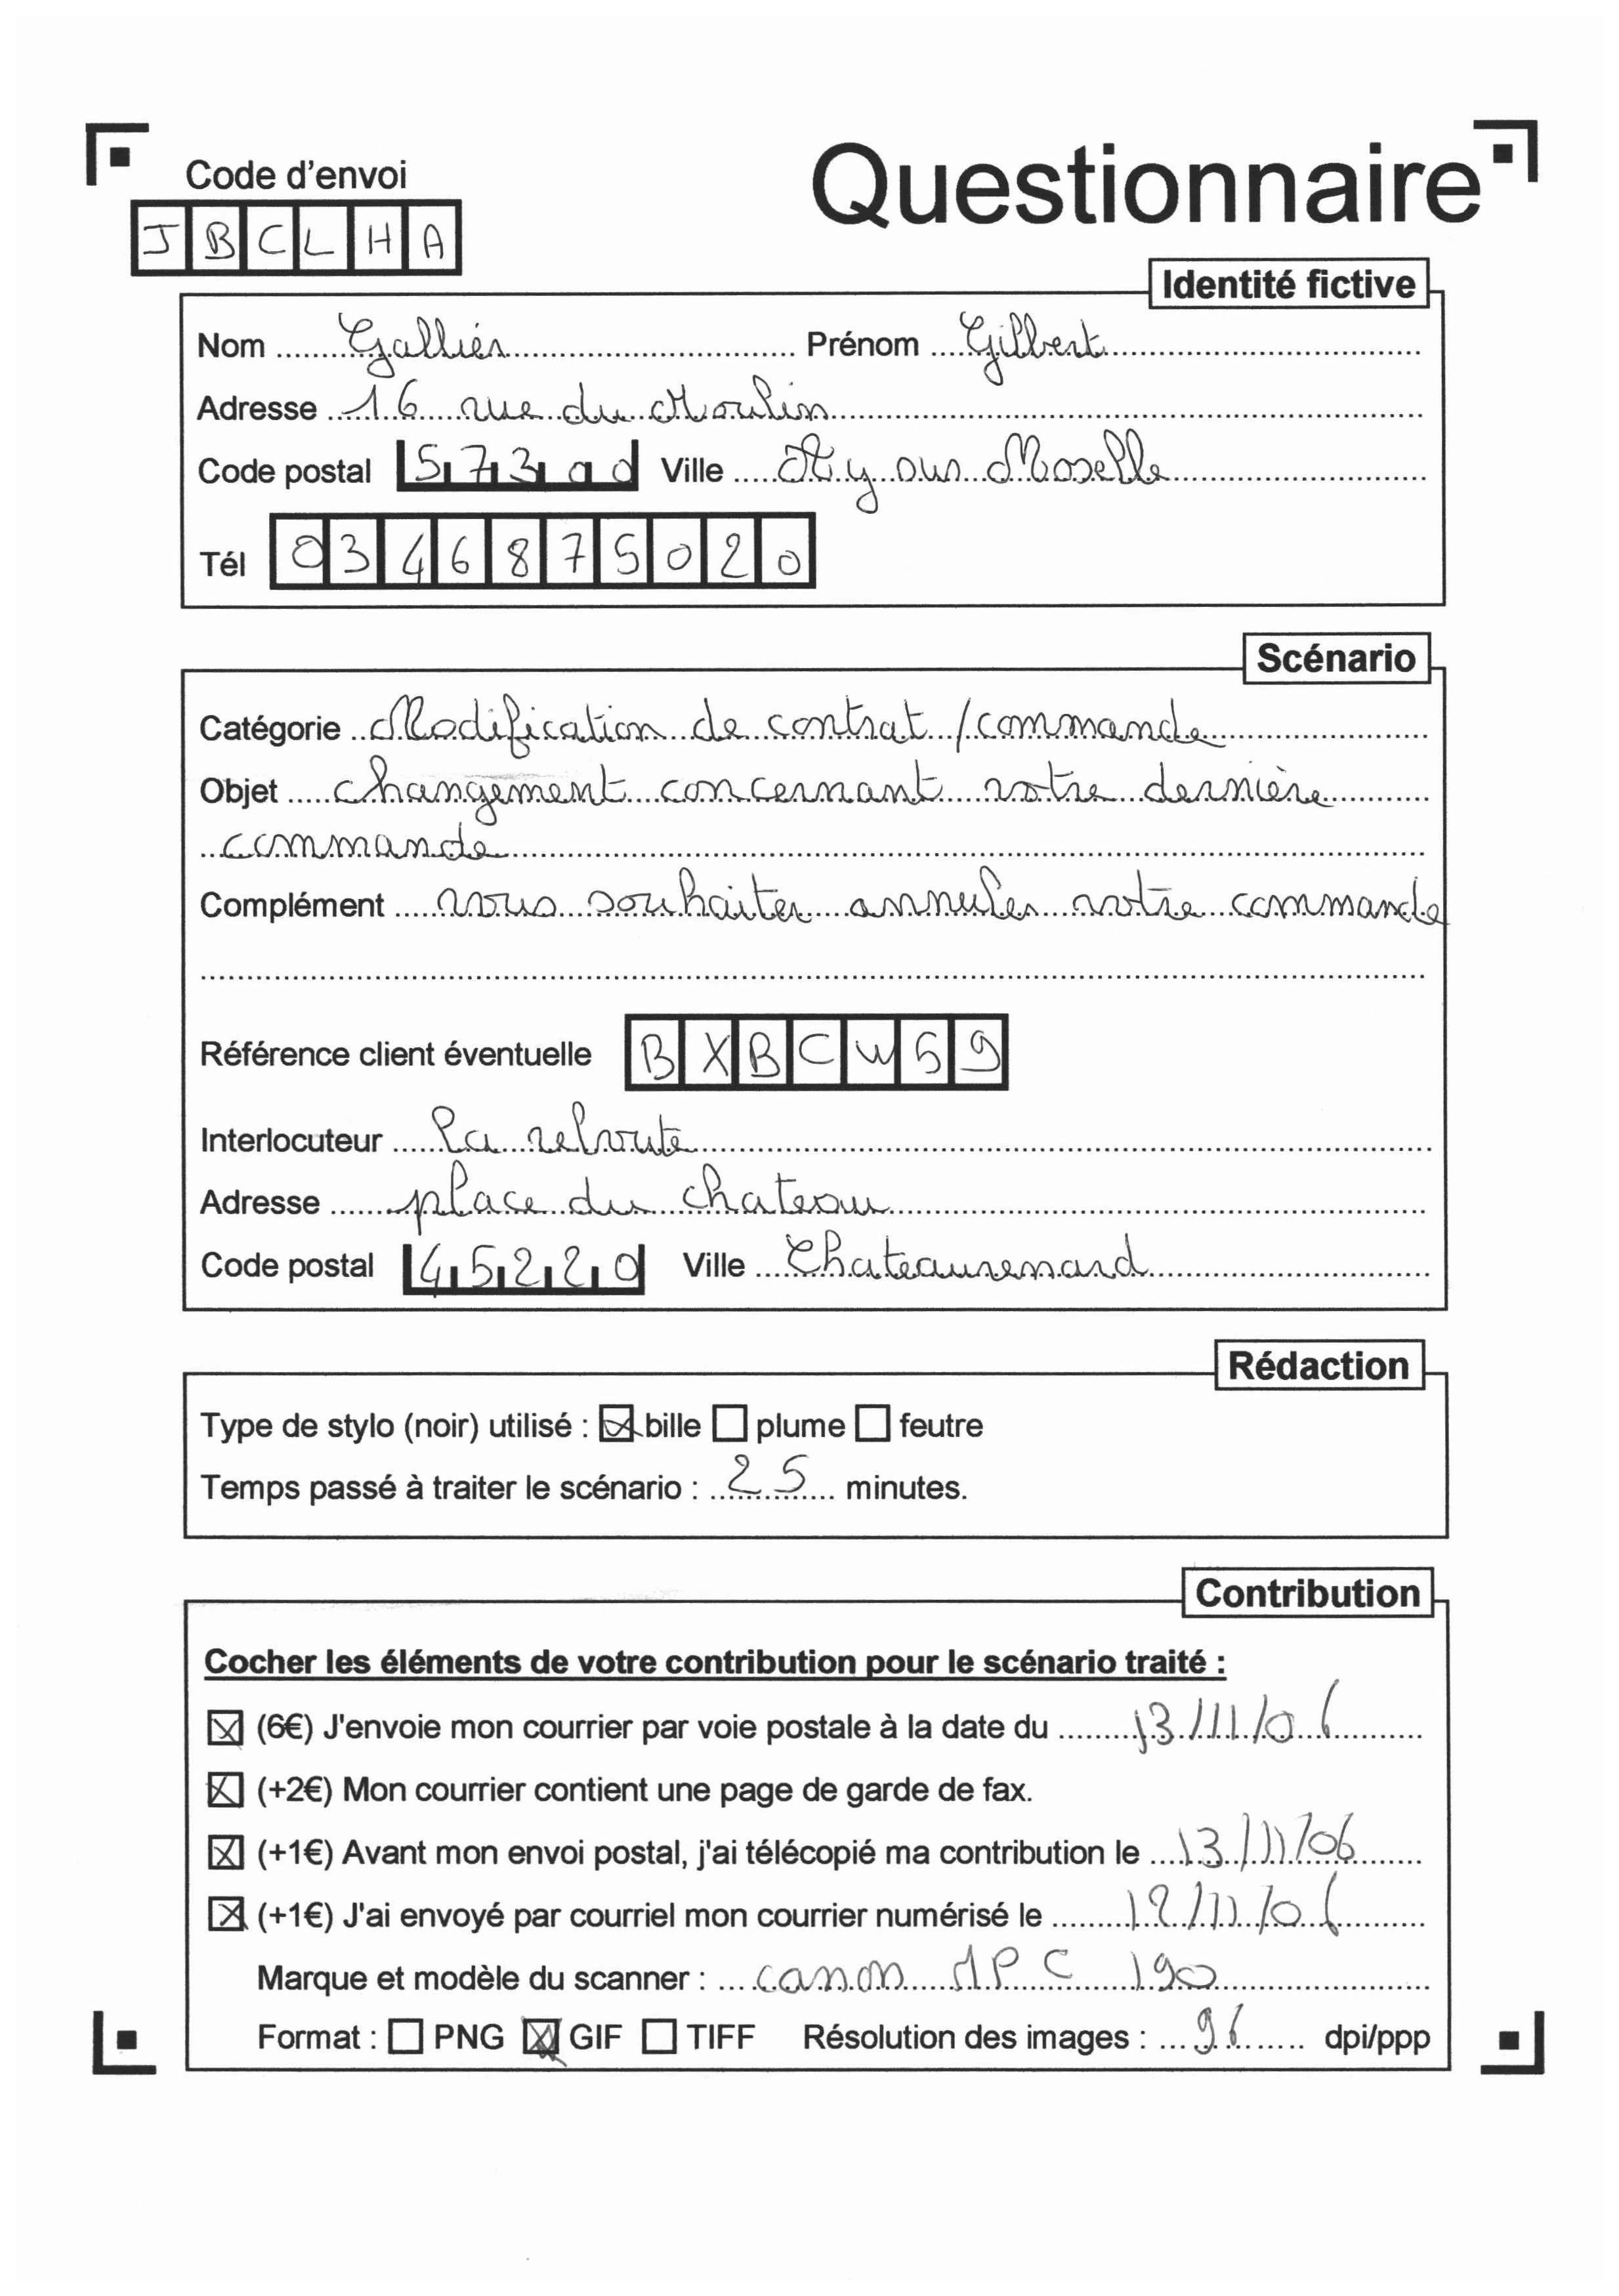 Code d'envoi
Questionnaire
J B C L H A
Identité fictive
Nom Gallier Prénom Gilbert
Adresse 16 rue du Moulin
Code postal 573 Ville sur Moselle
Tél 0346875020
Scénario
Catégorie Modification de contrat / commande
Objet changement concernant votre dernière
commande
Complément vous souhaiter annuler votre commande
Référence client éventuelle B X B C W 5 9
Interlocuteur la reloute
Adresse place du chateau
Code postal 45220 Ville Chateaurenard
Rédaction
Type de stylo (noir) utilisé : bille plume feutre
Temps passé à traiter le scénario : 25 minutes.
Contribution
Cocher les éléments de votre contribution pour le scénario traité :
(6€) J'envoie mon courrier par voie postale à la date du 13/11/06
(+2€) Mon courrier contient une page de garde de fax.
(+1€) Avant mon envoi postal, j'ai télécopié ma contribution le 13/11/06
(+1€) J'ai envoyé par courriel mon courrier numérisé le 12/11/06
Marque et modèle du scanner : canon MPC 190
Format : PNG GIF TIFF Résolution des images : 96 dpi/ppp